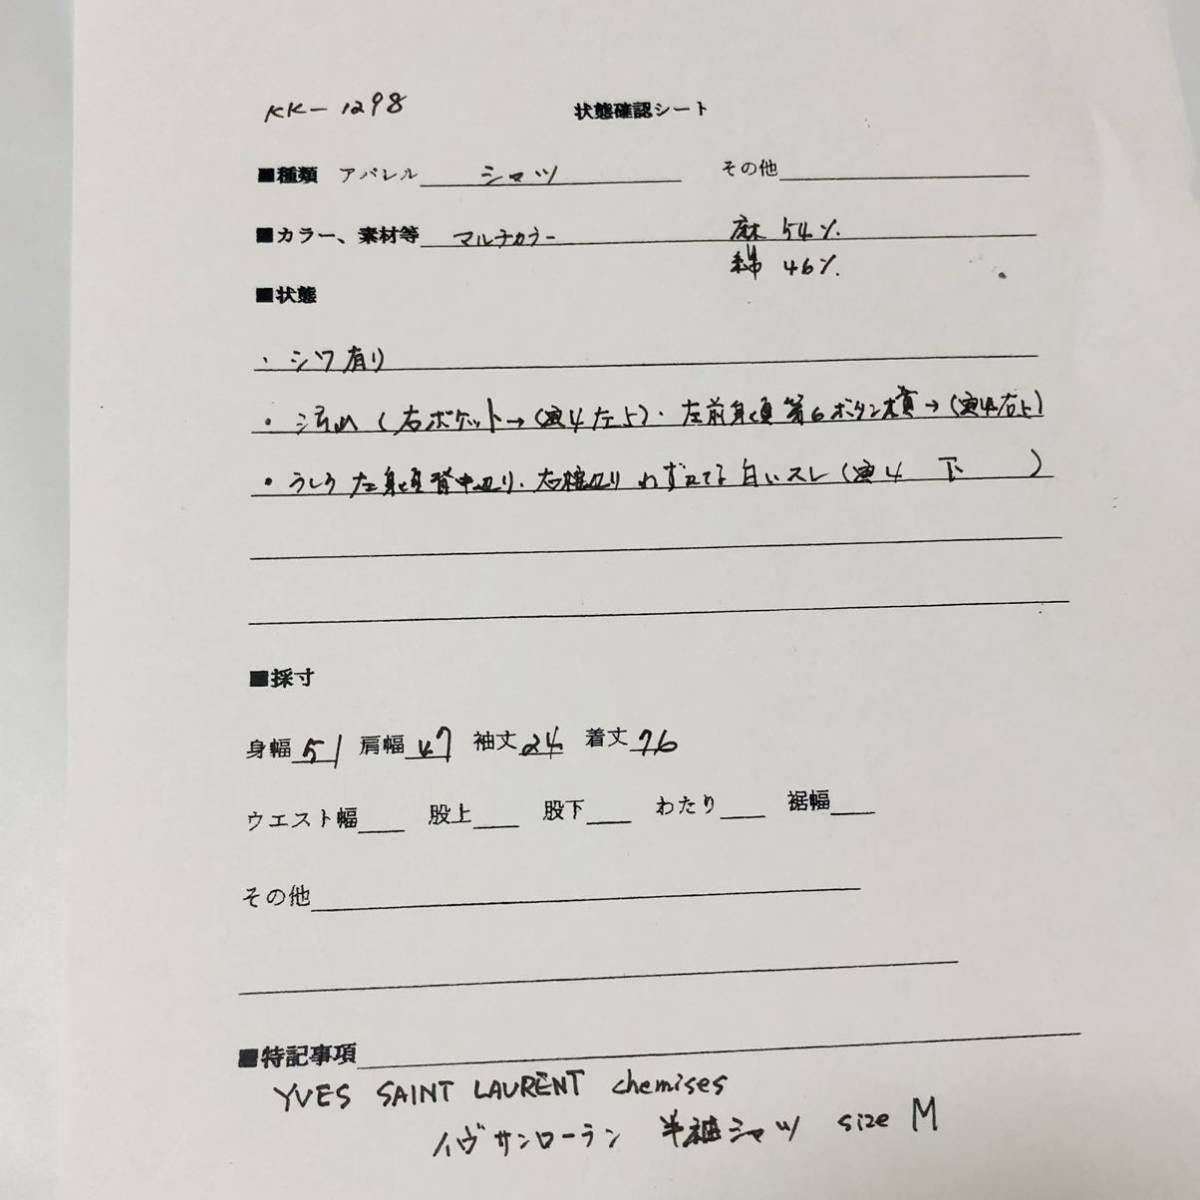 KK-1298 状態確認シート
■種類 アパレル シャツ その他
■カラー、素材等 マルチカラー 麻 54%
綿 46%
■状態
・シワ有り
・汚れ (右ポケット→(画4左上)・左前身頃第6ボタン横→(画4右上)
・うしろ左身頃背中辺り・右裾辺り わずかな白いスレ(画4 下 )
■採寸
身幅 51 肩幅 47 袖丈 24 着丈 76
ウエスト幅 股上 股下 わたり 裾幅
その他
■特記事項
YVES SAINT LAURENT chemises
イヴサンローラン 半袖シャツ size M